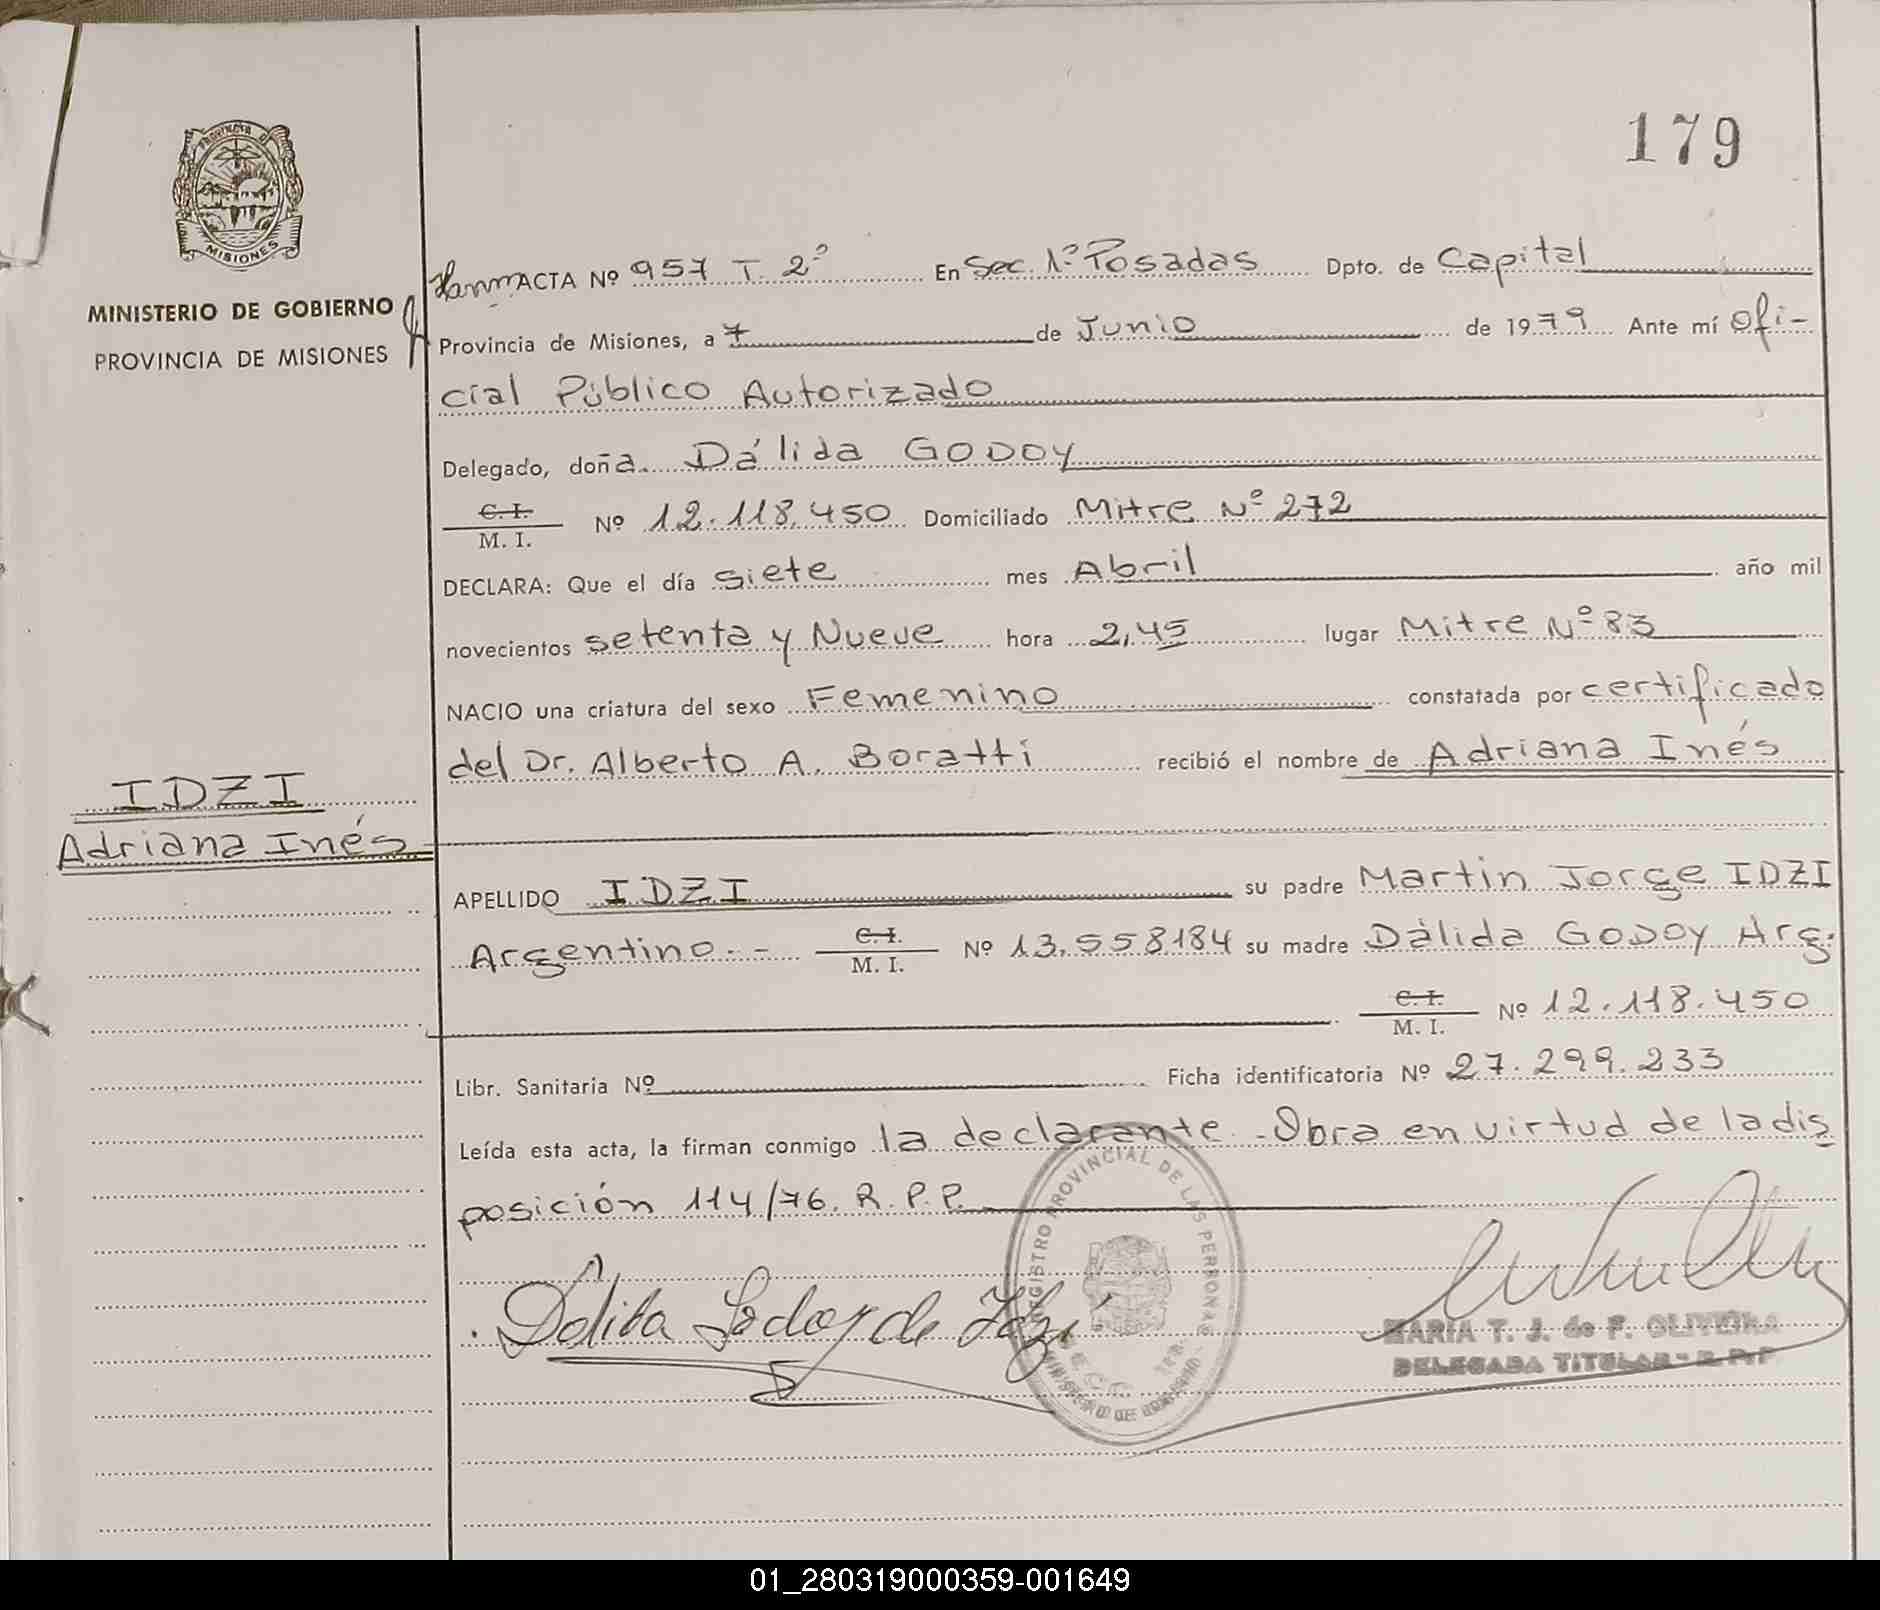 179
PROVINCIA D
MISIONES
MINISTERIO DE GOBIERNO
PROVINCIA DE MISIONES
ACTA Nº 957 T. 2º En Sec. 1º Posadas Dpto. de Capital
Provincia de Misiones, a 7 de Junio de 1979 Ante mí Ofi-
cial Público Autorizado
Delegado, doña Dálida GODOY
C.I. M. I. Nº 12.118.450 Domiciliado Mitre Nº 272
DECLARA: Que el día siete mes Abril año mil
novecientos setenta y Nueve hora 2,45 lugar Mitre Nº 83
NACIO una criatura del sexo Femenino constatada por certificado
del Dr. Alberto A. Boratti recibió el nombre de Adriana Inés
IDZI
Adriana Inés
APELLIDO IDZI su padre Martin Jorge IDZI
Argentino.- C.I. M. I. Nº 13.558184 su madre Dálida GODOY Arg.
C.I. M. I. Nº 12.118.450
Libr. Sanitaria Nº Ficha identificatoria Nº 27.299.233
Leída esta acta, la firman conmigo la declarante.-Obra en virtud de la dis
posición 114/76. R.P.P.
REGISTRO PROVINCIAL DE LAS PERSONAS
MINISTERIO DE GOBIERNO
Dálida Godoy de Idzi
MARIA T. J. de F. OLIVEIRA
DELEGADA TITULAR - R.P.P.
01_280319000359-001649